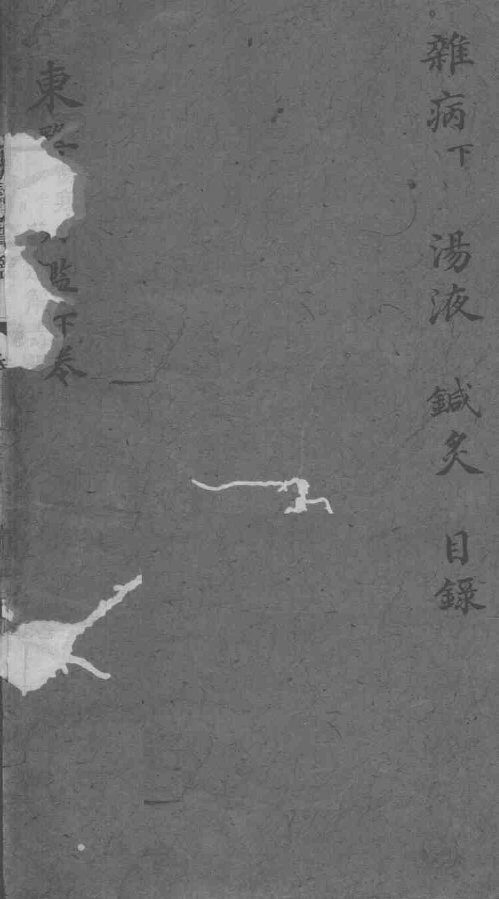 雜病下 湯液 鍼灸 目錄
東監下卷